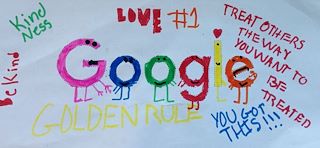 KinD
Ness
LOVE #1
TREAT OTHERS
THE WAY
YOU WANT TO
BE
TREATED
Be Kind
Google
GOLDEN RULE
YOU GOT
THIS!!!